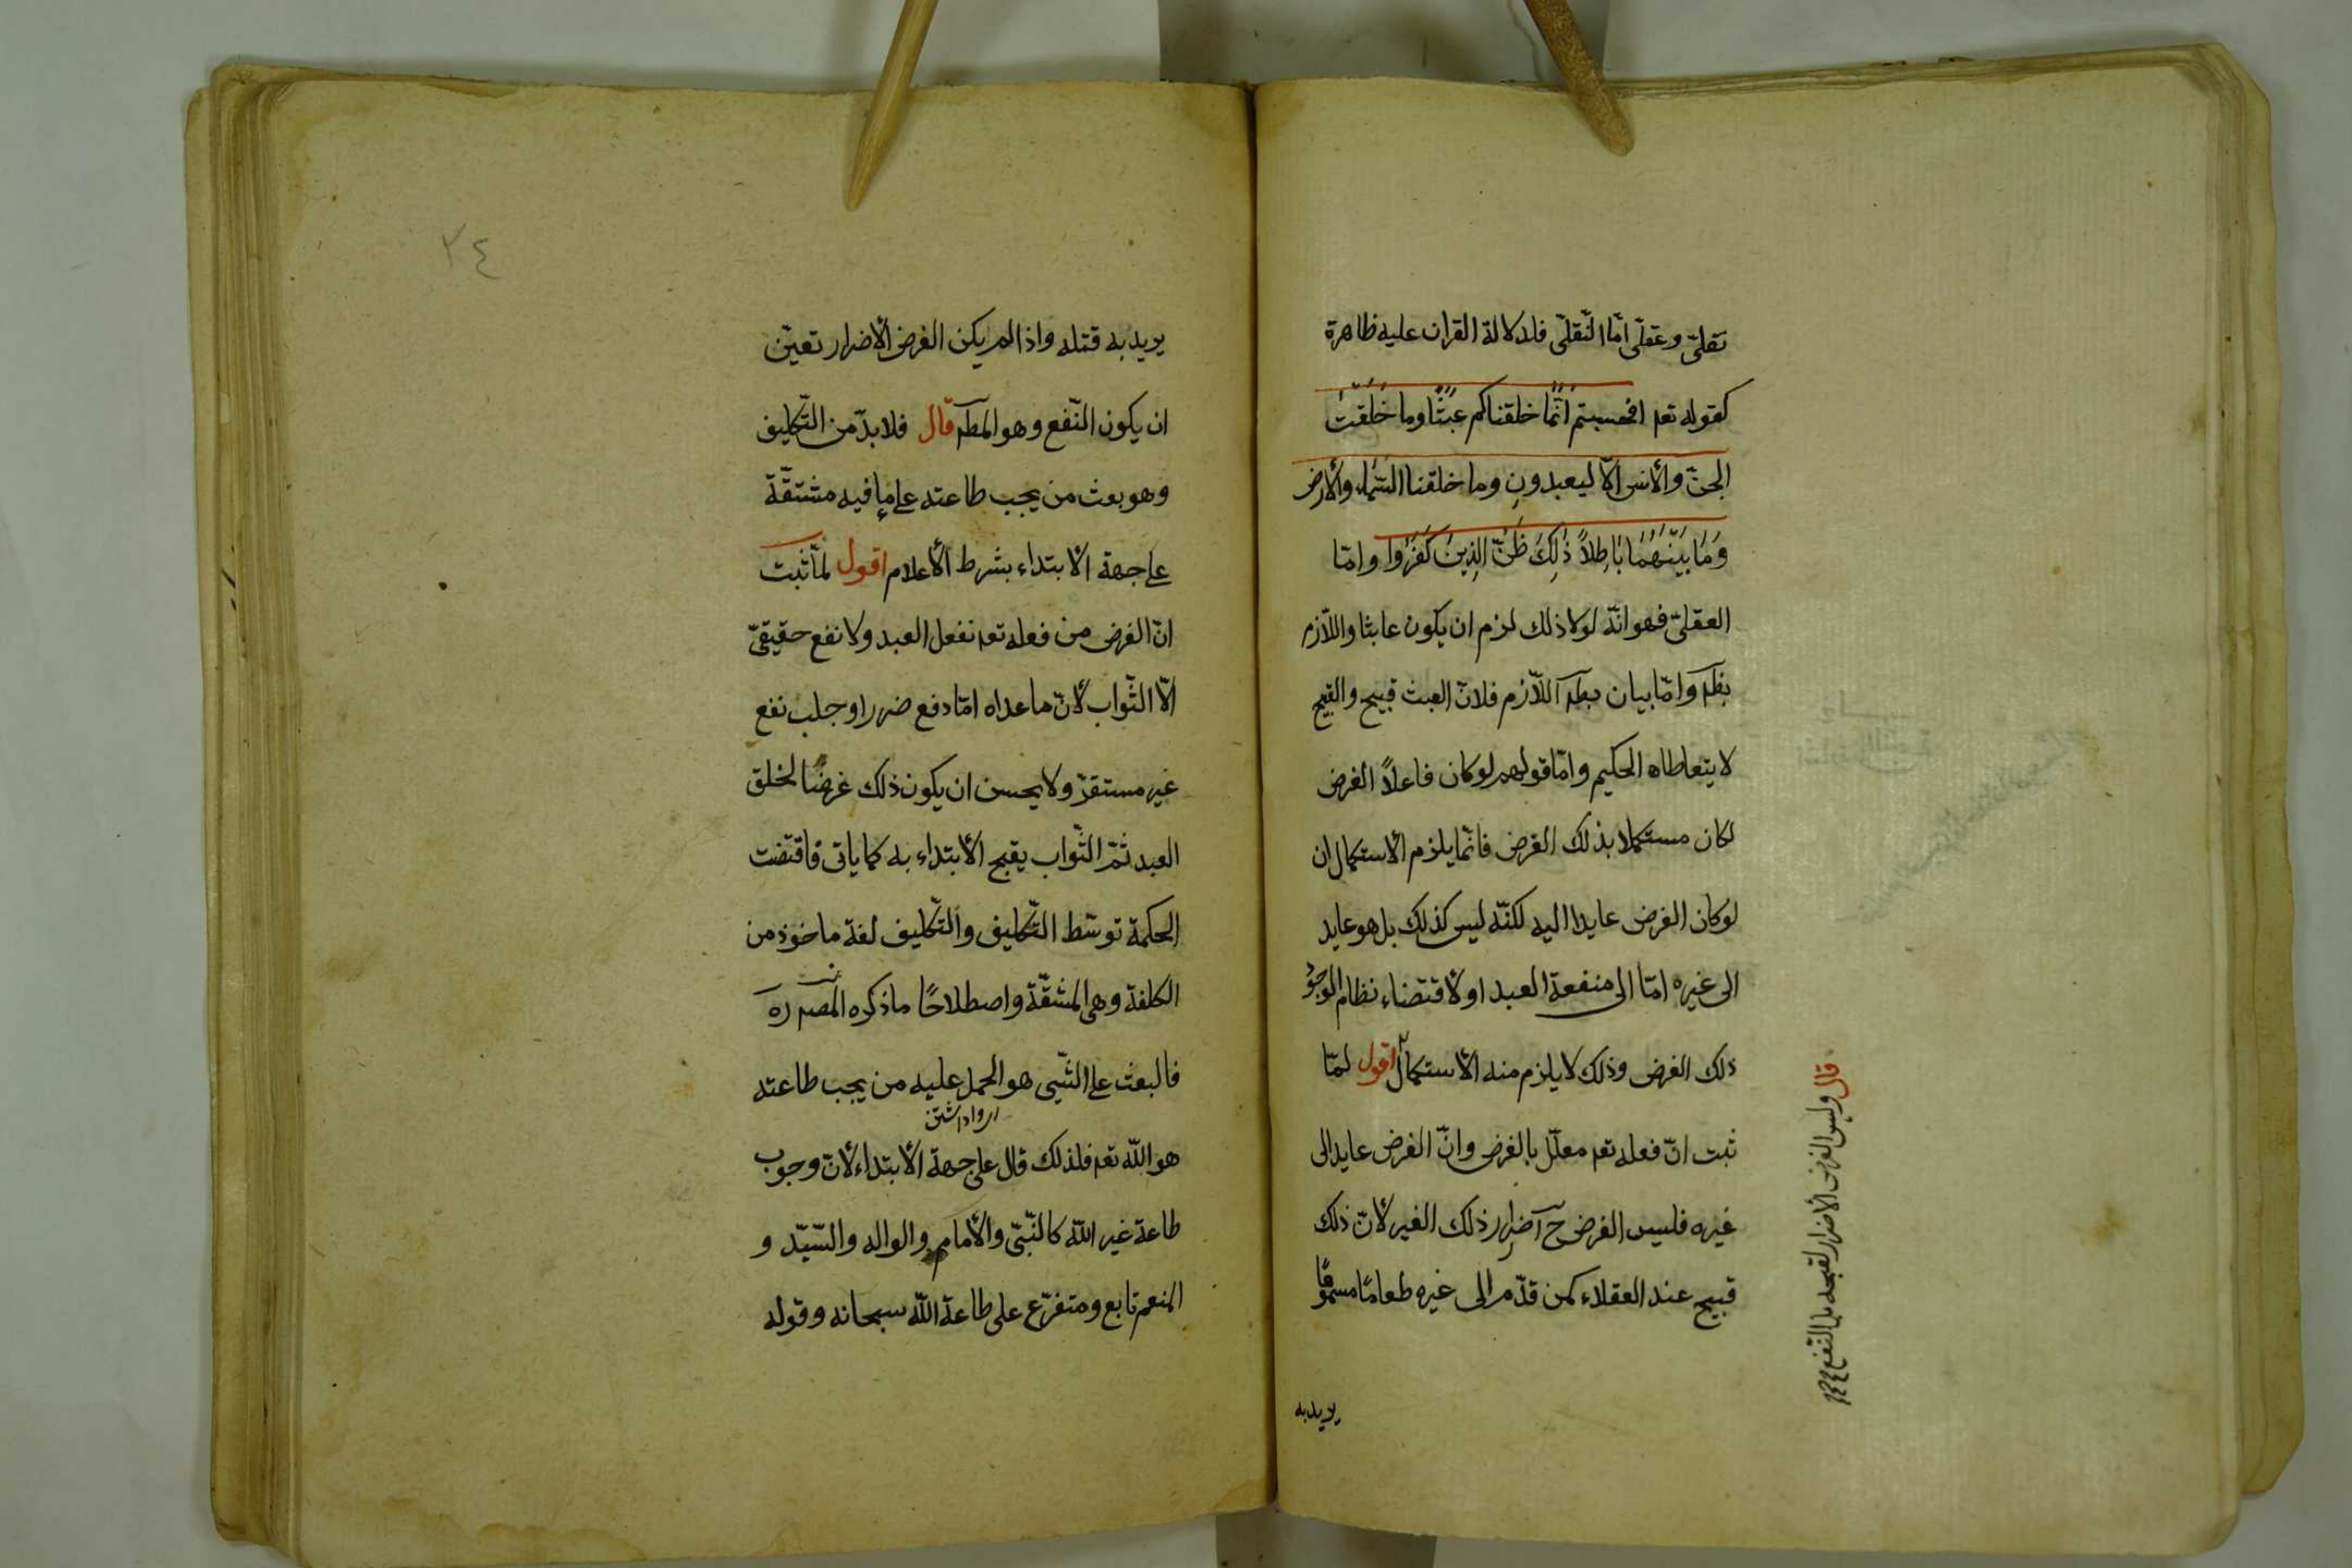 نقلىّ وعقلّى امّا النّقلّى فلدلالة القران عليه ظاهرة
كقوله تعم افحسبتم انّمَا خلقناكم عبَثًا وما خلقت
الجنّ والأنس الّا ليعبدونِ وما خلقنا السّماء والأرض
وَمَا بَينَهُمَا بَاطِلاً ذٰلِكَ ظَنّ الذِينَ كَفَرُوا وامّا
العقلىّ فهو انّه لولا ذلك لزم ان يكون عابثا واللّازم
بطم وامّا بيان بطم اللّازم فلانّ العبث قبيح والقبيح
لا يتعاطاه الحكيم وامّا قولهم لو كان فاعلاً الغرض
لكان مستكملا بذلك الغرض فانّما يلزم الاستكمال ان
لو كان الغرض عايدا اليه لكنّه ليس كذلك بل هو عايد
الى غيره امّا الى منفعة العبد او لاقتضاء نظام الوجود
ذلك الغرض وذلك لا يلزم منه الأستكمال اقول لمّا
ثبت انّ فعله تعم معلّل بالغرض وانّ الغرض عايد الى
غيره فليس الغرض ح اضرار ذلك الغير لأنّ ذلك
قبيح عند العقلاء كمن قدّم الى غيره طعامًا مسمومًا
يريد به
قال وليس الغرض الأضرار لقبحه بل النّفع
٢٤
يريد به قتله واذا لم يكن الغرض الأضرار تعيّن
ان يكون النّفع وهو المطم قال فلابدّ من التّكليف
وهو بعث من يجب طاعته على ما فيه مشقّة
على جهة الابتداء بشرط الأعلام اقول لمّا ثبت
انّ الغرض من فعله تعم نفع العبد ولا نفع حقيقىّ
الّا الثّواب لأنّ ما عداه امّا دفع ضرر او جلب نفع
غير مستقرّ ولا يحسن ان يكون ذلك غرضًا لخلق
العبد ثمّ الثّواب يقبح الأبتداء به كما ياتى فاقتضت
الحكمة توسّط التّكليف والتّكليف لغة ماخوذ من
الكلفة وهى المشقّة واصطلاحًا ما ذكره المصنف ره
فالبعث على الشّيى هو الحمل عليه من يجب طاعته
هو اللّه تعم فلذلك قال على جهة الأبتداء لأنّ وجوب
طاعة غير اللّه كالنّبىّ والأمام والوالد والسّيّد و
المنعم تابع ومتفرّع على طاعة اللّه سبحانه وقوله